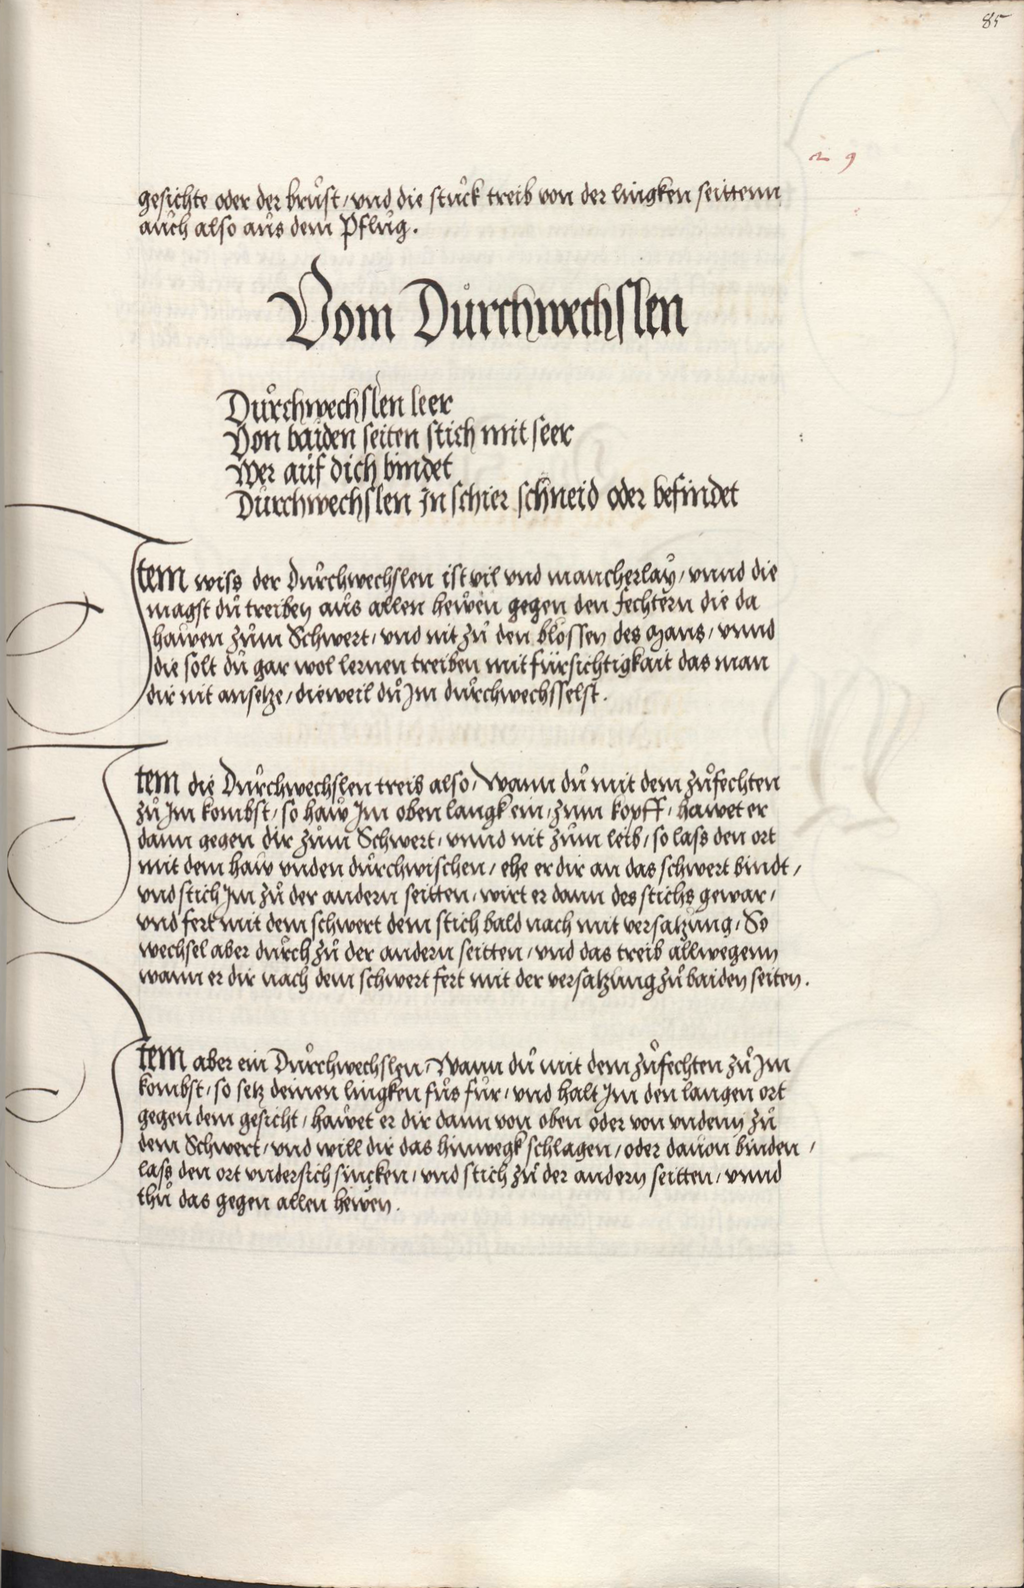 85
2 9
gesichte oder der brůst / vnd die stůck treib von der lingken seittenn
aůch also aůs dem Pflůg .
Vom Důrchwechslen
Důrchwechslen leer
Von baiden seiten stich mit seer
Wer aůf dich bindet
Důrchwechslen jn schier schneid oder befindet
Item wiss der Důrchwechslen ist vil vnd mancherlaÿ / vnnd die
magst dů treiben aůs allen hewen gegen den Fechtern die da
hawen zům Schwert / vnd nit zů den blössen des Mans / vnnd
die solt dů gar wol lernen treiben mit fürsichtigkait das man
dir nit ansetze / dieweil dů Jm důrchwechsselst .
Item die Důrchwechslen treib also / Wann dů mit dem zůfechten
zů Jm kombst / so haw Jm oben langk ein / zům kopff / hawet er
dann gegen dir zům Schwert / vnnd nit zům leib / so lass den ort
mit dem haw vnden důrchwischen / ehe er dir an das schwert bindt /
vnd stich Jm zů der andern seitten / wirt er dann des stichs gewar /
vnd fert mit dem schwert dem stich bald nach mit versatzůng / So
wechsel aber důrch zů der andern seitten / vnd das treib allwegenn
wann er dir nach dem schwert fert mit der versatzung zů baiden seiten .
Item aber ein Důrchwechslen / Wann dů mit dem zůfechten zů Jm
kombst / so setz deinen lingken fůs für / vnd halt Jm den langen ort
gegen dem gesicht / hawet er dir dann von oben oder von vndenn zů
dem Schwert / vnd will dir das hinwegk schlagen / oder dauon binden /
lass den ort vndersich sincken / vnd stich zů der andern seitten / vnnd
thů das gegen allen hewen .